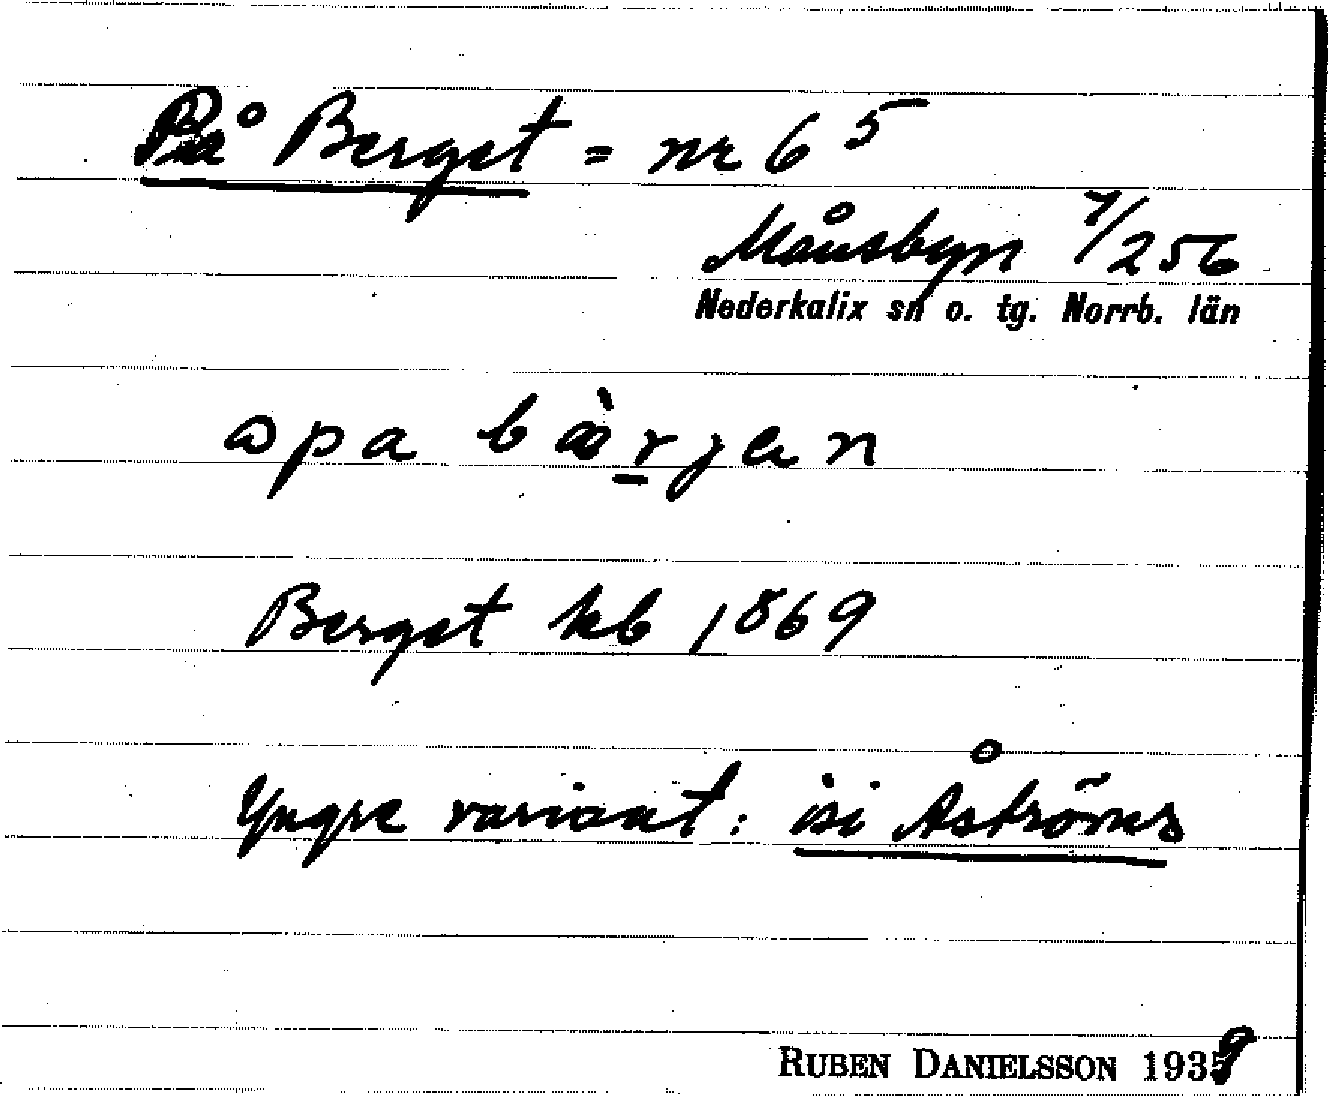 På Berget = nr 65
Månsbyn 7/256
Nederkalix sn o. tg. Norrb. län
opa bæ̀r̲jen
Berget kb 1869
Yngre variant: isi Åströms
RUBEN DANIELSSON 1939